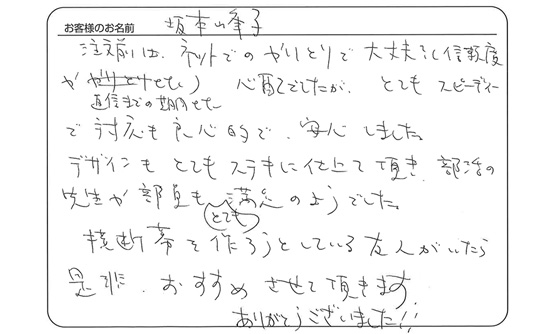 お客様のお名前 坂本峰子
注文前は、ネットでのやりとりで大丈夫?(信頼度
が やりとりせむし) 心配でしたが、とてもスピーディー
返信までの期間せむ
で対応も良心的で、安心しました。
デザインもとてもステキに仕上て頂き、部活の
先生や部員も とても 満足のようでした。
横断幕を作ろうとしている友人がいたら
是非、おすすめさせて頂きます
ありがとうございました!!